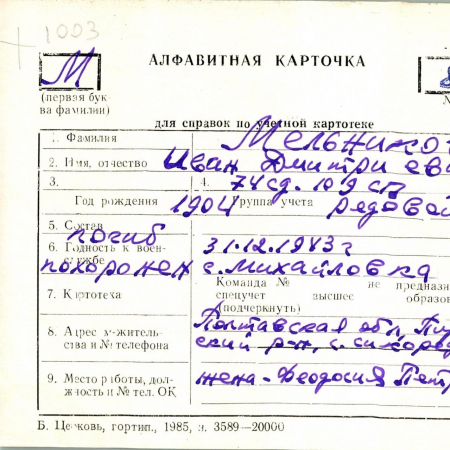 1003
М
АЛФАВИТНАЯ КАРТОЧКА
(первая бук
ва фамилии)
№
для справок по учетной картотеке
1. Фамилия Мельников
2. Имя, отчество Иван Дмитриеви
3. 4. 74 сд. 109 сп
Год рождения 1904 Группа учета рядовой
5. Состав погиб
6. Годность к воен- 31.12.1943 г
службе похоронен с. Михайловка
Команда № не предназн
7. Картотека спецучет высшее образов
(подчеркнуть)
8. Адрес ж-житель- Полтавская обл, Пир
ства и № телефона ский р-н, с. Сикоред
9. Место работы, дол- жена - Феодосия Петр
жность и № тел. ОК
Б. Церковь, гортип., 1985, з. 3589—20000